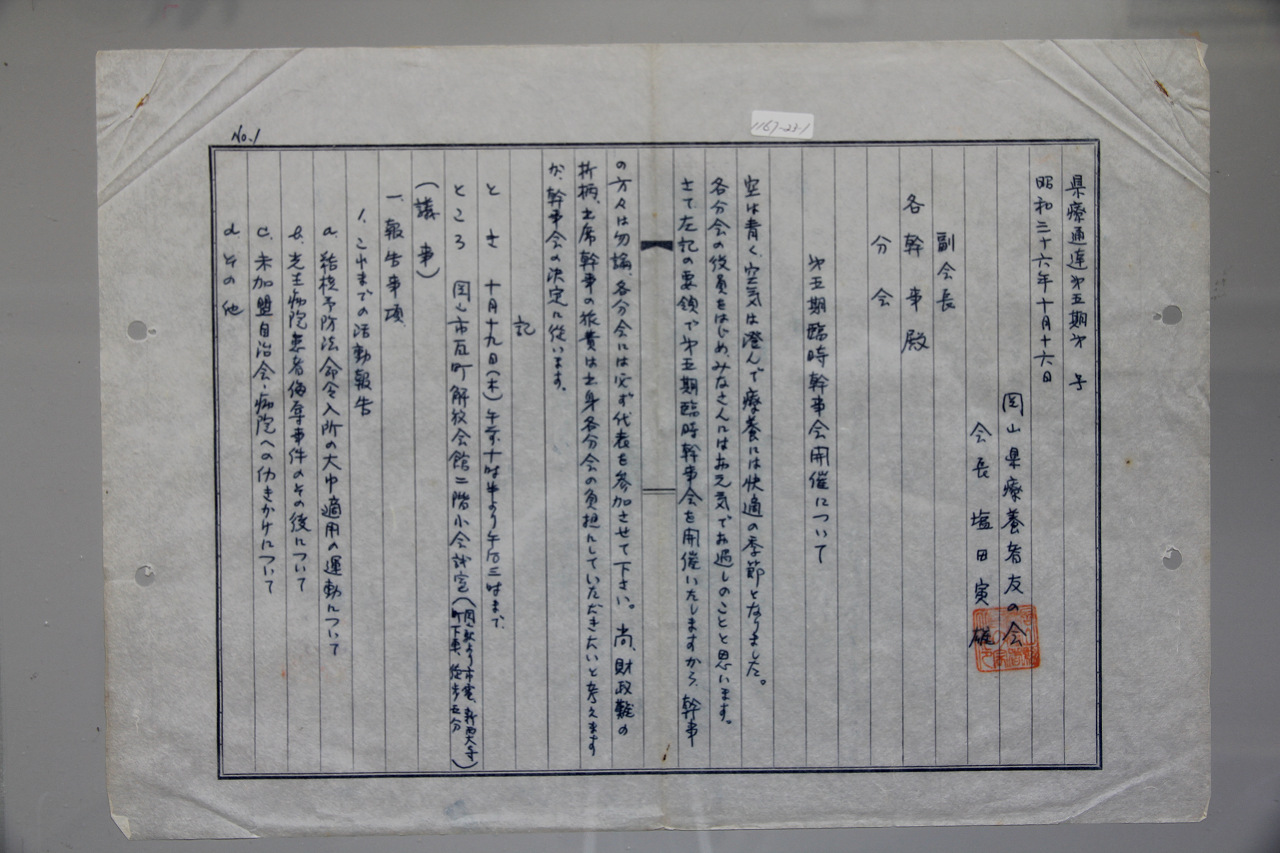 No.1
1167-23-1
県療通達第五期第　号
昭和三十六年十月十六日
岡山県療養者友の会
会長 塩田寅雄
副会長
各幹事殿
分会
第五期臨時幹事会開催について
空は青く、空気は澄んで療養には快適の季節となりました。
各分会の役員をはじめ、みなさんにはお元気でお過しのことと思います。
さて左記の要領で第五期臨時幹事会を開催いたしますから、幹事
の方々は勿論、各分会には必ず代表を参加させて下さい。尚、財政難の
折柄、出席幹事の旅費は出身各分会の負担にしていただきたいと考えます
が、幹事会の決定に従います。
記
とき 十月十九日(木)午前十時半より午后三時まで
ところ 岡山市瓦町解放会館二階小会議室(岡山駅より市電、新西大寺
町下車、徒歩五分)
(議事)
一、報告事項
1. これまでの活動報告
a. 結核予防法命令入所の大巾適用の運動について
b. 光生病院患者侮辱事件のその後について
c. 未加盟自治会・病院への働きかけについて
d. その他